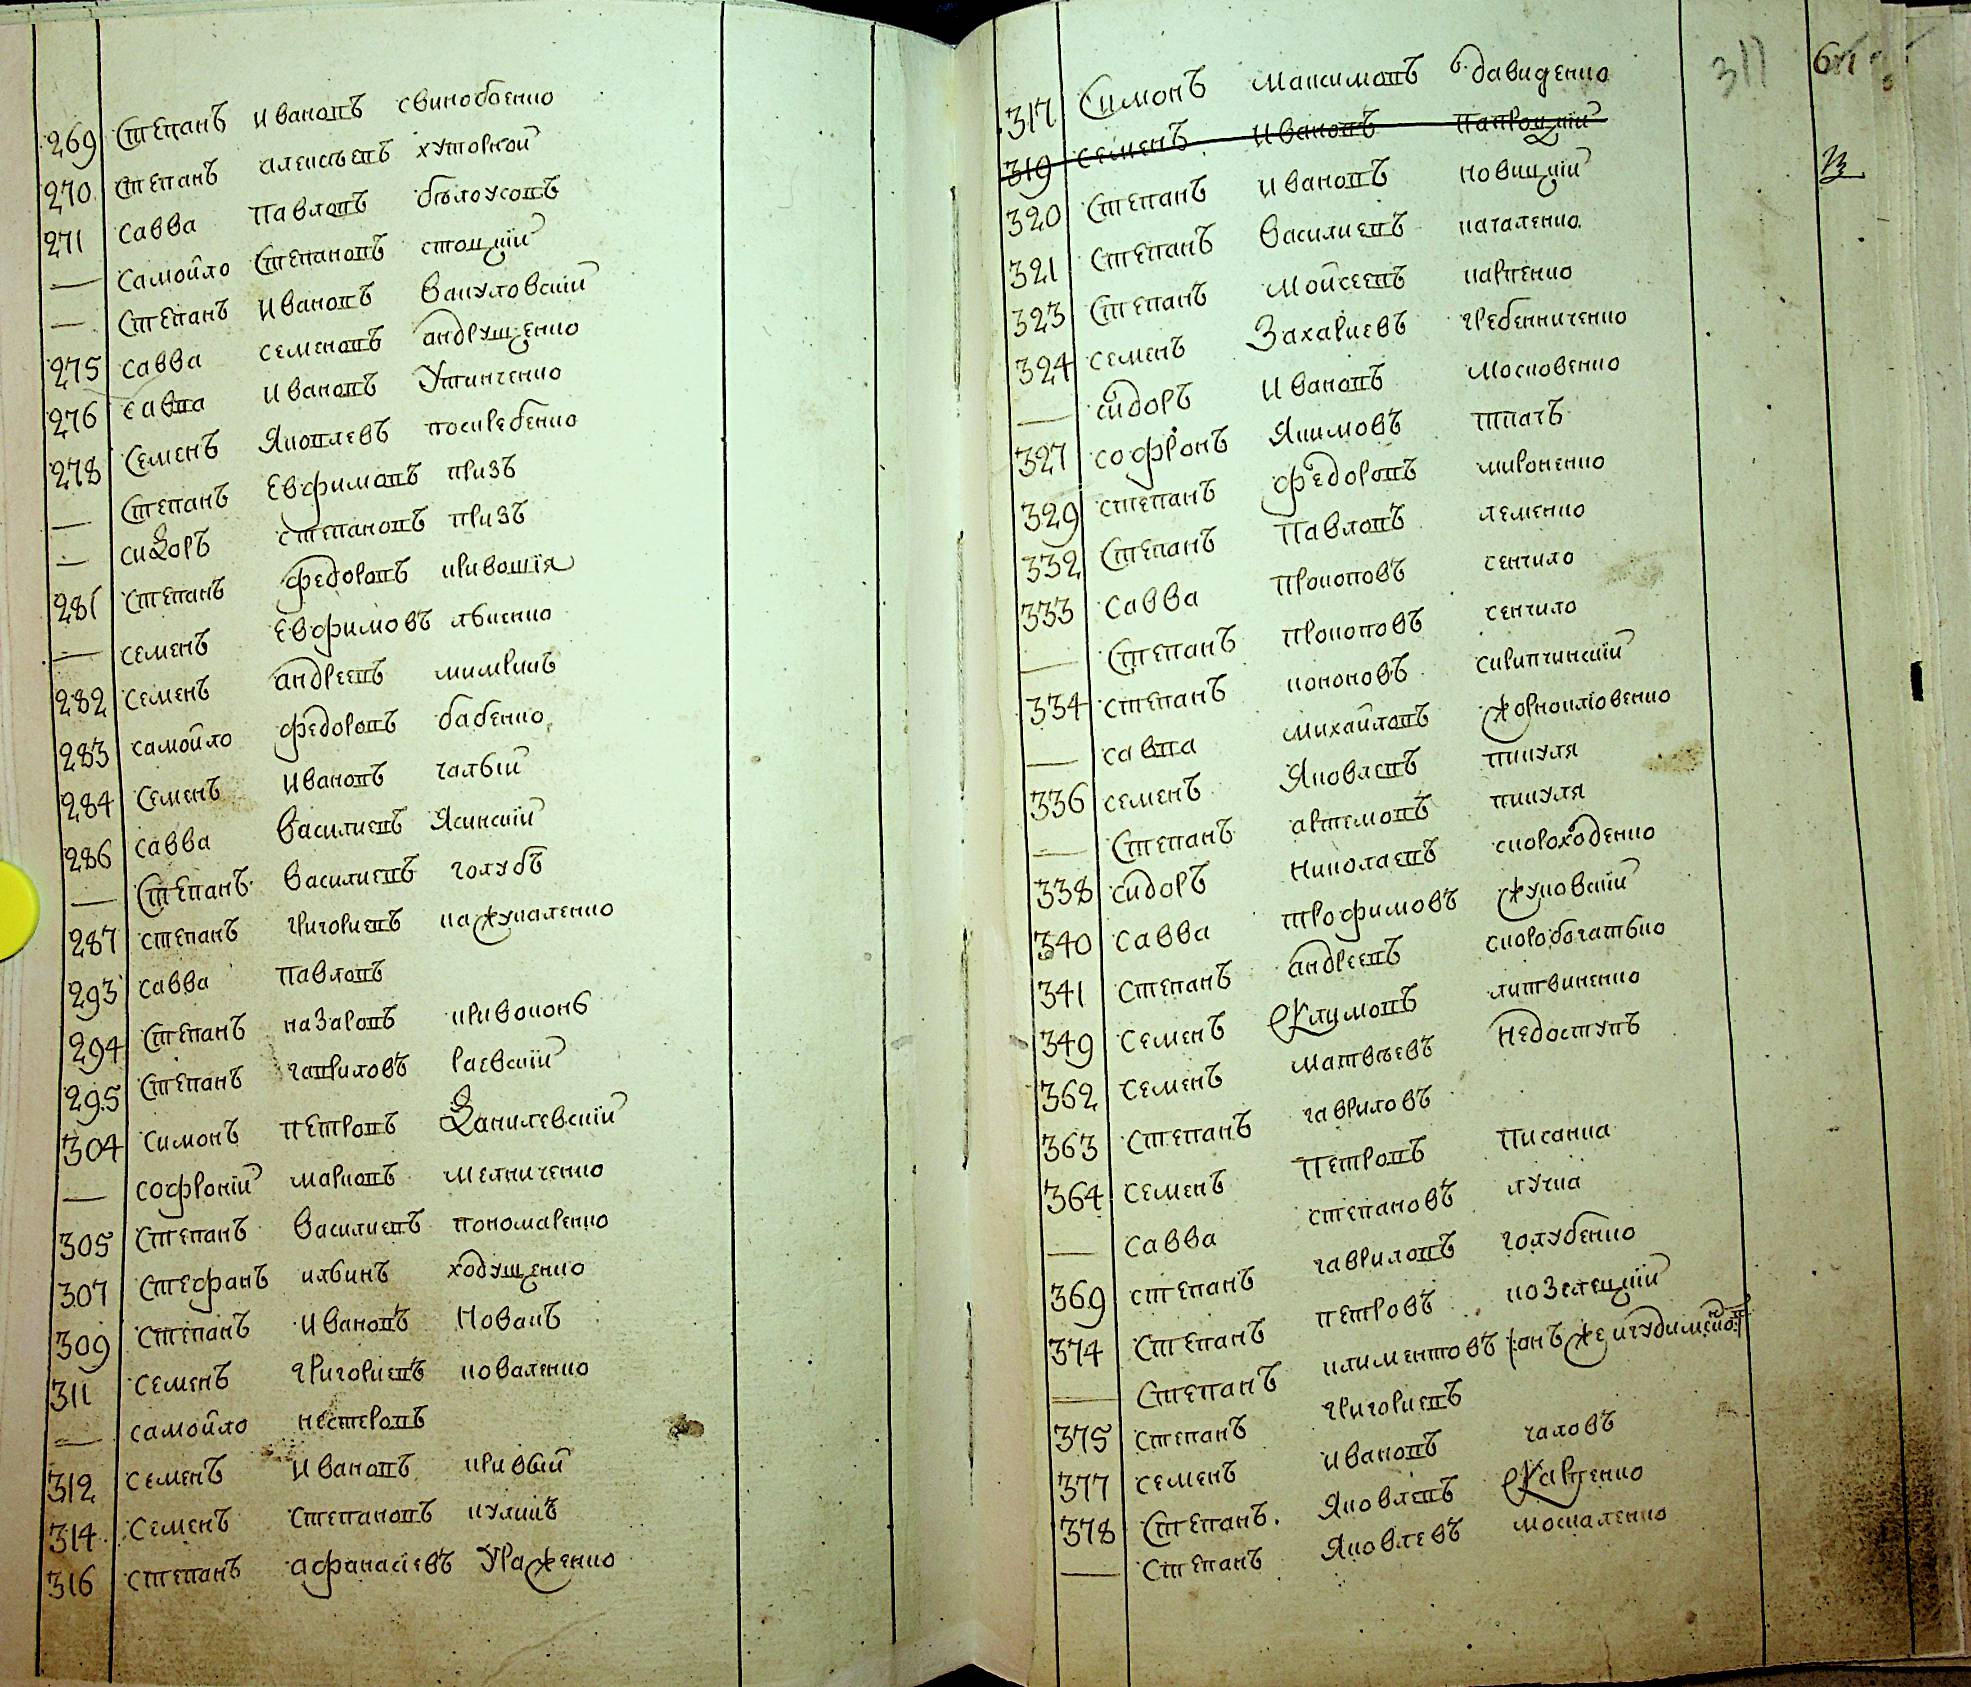 269 Степанъ Ивановъ свинобоенко
270 Степанъ алексѣевъ хуторной
271 савва Павловъ бѣлоусовъ
— самойло Степановъ стоцкій
— Степанъ Ивановъ Вакуловскій
275 савва семеновъ андрущенко
276 савва Ивановъ Утинченко
278 Семенъ Яковлевъ поскребенко
— Степанъ Евфимовъ призъ
— сидоръ степановъ призъ
281 Степанъ федоровъ кривошія
— семенъ Евфимовъ лысенко
282 семенъ андреевъ мимрикъ
283 самойло федоровъ бабенко
284 Семенъ Ивановъ чалый
286 савва Василиевъ Ясинскій
— Степанъ Василиевъ голубъ
287 степанъ григориевъ кажукаленко
293 савва Павловъ
294 Степанъ назаровъ кривоконь
295 Степанъ гавриловъ раевскій
304 симонъ петровъ данилевскій
— софроній марковъ мелниченко
305 Степанъ Василиевъ пономаренко
307 Стефанъ ильинъ ходущенко
309 Степанъ Ивановъ Новакъ
311 Семенъ григориевъ коваленко
— самойло нестеровъ
312 семенъ Ивановъ кривый
314 Семенъ Степановъ куликъ
316 степанъ афанасіевъ Ураженко
311
317 Симонъ Максимовъ давиденко
319 семенъ Ивановъ
320 Степанъ Ивановъ новицкій
321 Степанъ Василиевъ качаленко
323 Степанъ Мойсеевъ карпенко
324 семенъ Захариевъ гребенниченко
— сидоръ Ивановъ Московенко
327 софронъ Якимовъ ткачъ
329 степанъ федоровъ мироненко
332 Степанъ Павловъ леменко
333 савва Прокоповъ сенчило
— Степанъ Прокоповъ сенчило
334 степанъ кононовъ скрипчинскій
— савва михайловъ жорноклювенко
336 семенъ Яковлевъ пикуля
— Степанъ артемовъ пикуля
338 сидоръ николаевъ скороходенко
340 савва трофимовъ жуковскій
341 степанъ андреевъ скоробогатько
349 семенъ Климовъ литвиненко
362 семенъ матвѣевъ недоступъ
363 Степанъ гавриловъ
364 семенъ Петровъ Писанка
— савва степановъ лучка
369 степанъ гавриловъ голубенко
374 Степанъ петровъ козелецкій
— Степанъ климентовъ
375 степанъ григориевъ
377 семенъ Ивановъ чаловъ
378 Степанъ. Яковлевъ Карпенко
— Степанъ Яковлевъ москаленко